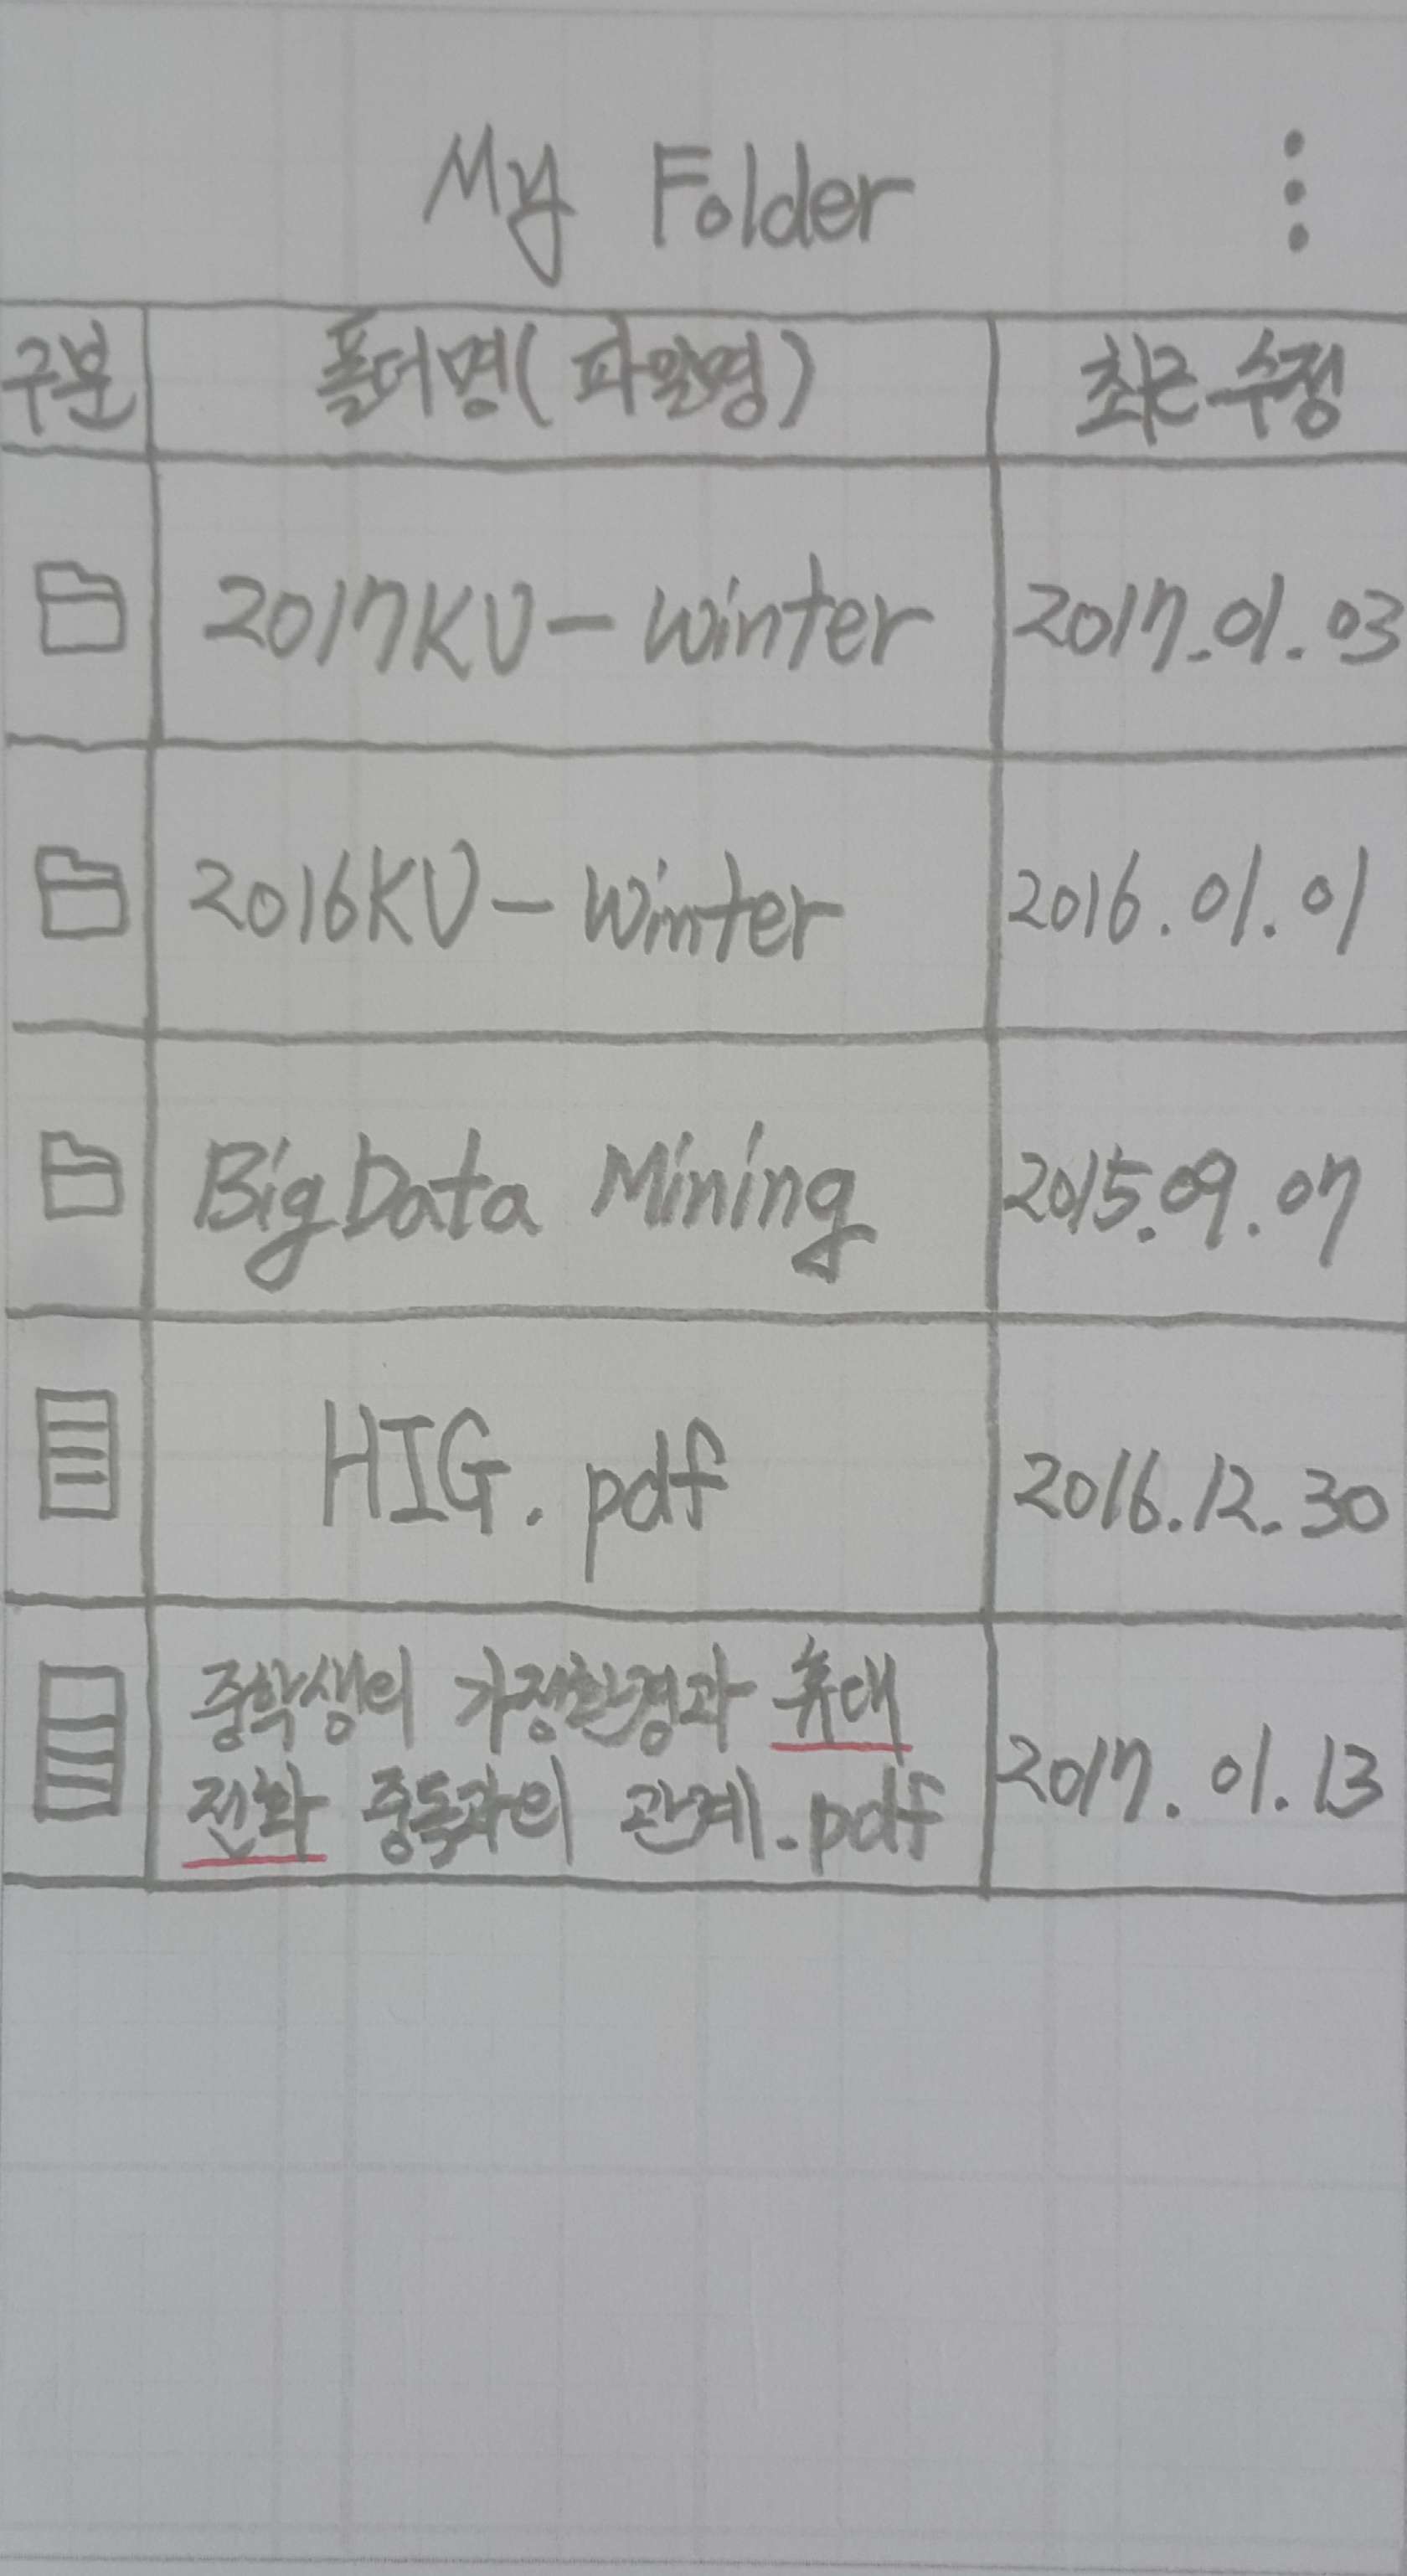 My Folder
구분 폴더명(파일명) 최근 수정
2017KU-Winter 2017.01.03
2016KU-Winter 2016.01.01
BigData Mining 2015.09.07
HIG.pdf 2016.12.30
중학생의 가정환경과 휴대
전화 중독과의 관계.pdf 2017.01.13